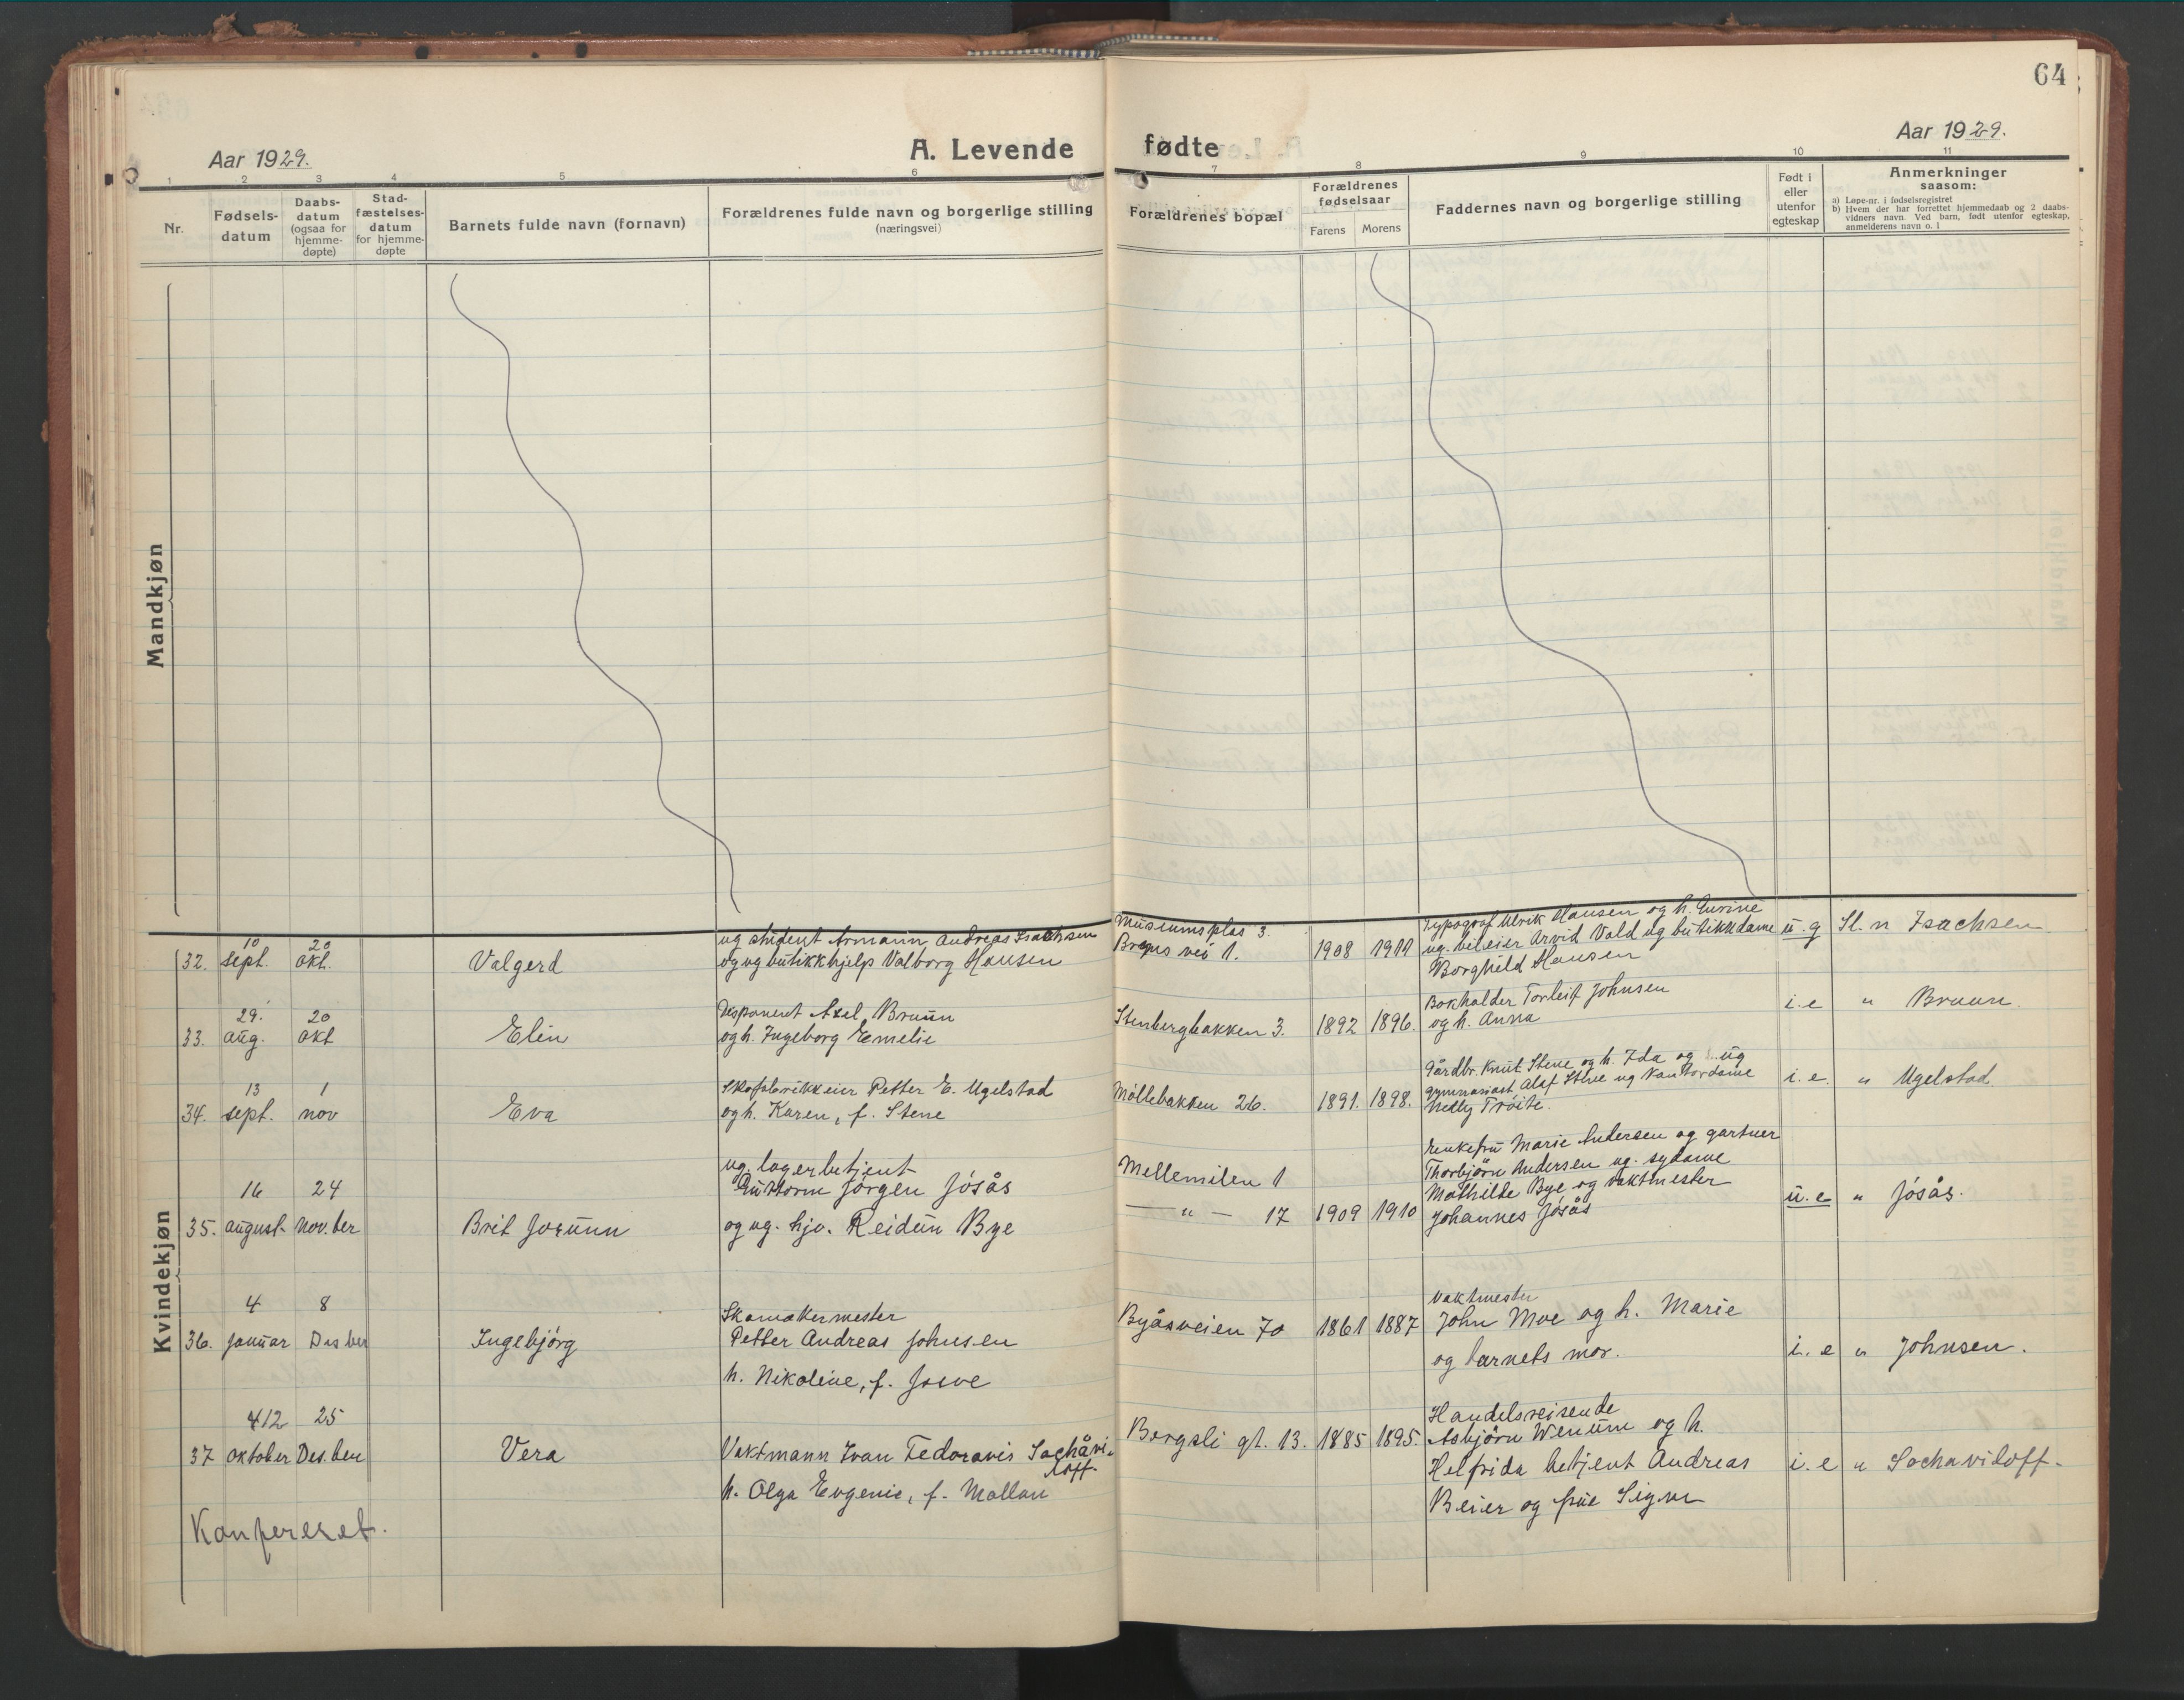 64
Aar 1929.
A. Levende
fødte
Aar 1929.
1 2 3 4 5 6 7 8 9 10 11
Nr.
Fødsels-
datum
Daabs-
datum
(ogsaa for
hjemme-
døpte)
Stad-
fæstelses-
datum
for hjemme-
døpte
Barnets fulde navn (fornavn)
Forældrenes fulde navn og borgerlige stilling
(næringsvei)
Forældrenes bopæl
Forældrenes
fødselsaar
Farens Morens
Faddernes navn og borgerlige stilling
Født i
eller
utenfor
egteskap
Anmerkninger
saasom:
a) Løpe-nr. i fødselsregistret
b) Hvem der har forrettet hjemmedaab og 2 daabs-
vidners navn. Ved barn, født utenfor egteskap,
anmelderens navn o. l
Mandkjøn
Kvindekjøn
32.
10
sept.
20
okt.
Valgerd
ug student Armann Andreas Isachsen
og ug butikkhjelp Valborg Hansen
Museumsplas 3.
vei 1.
1908 1911
Typograf Ulrik Hansen og h.
ug. Arvid Vold ug butikkdame
Borghild Hansen
u. g
Sl. n Isachsen
33.
29.
aug.
20
okt
Elin
Disponent Axel Bruun
og h. Ingeborg Emelie
Stenbergbakken 3.
1892 1896.
Bokholder Torleif Johnsen
og h. Anna
i. e
" Bruun.
34.
13
sept.
1
nov
Eva
Skofabrikkeier Petter E. Ugelstad
og h. Karen, f. Stene
Møllebakken 26.
1891. 1898.
Gårdbr. Knut Stene og h. Ida og ug
gymnasiast Olaf Stene ug kontordame
Nelly Trøite.
i. e.
" Ugelstad
35.
16
august.
24
Nov.ber
Brit Jorunn
ug. lagerbetjent
Guttorm Jørgen Jøsås
og ug. hjv. Reidun Bye
Mellemilen 1
— " — 17
1909 1910
Enkefru Marie Andersen og gartner
Thorbjørn Andersen ug. sydame
Mathilde Bye og vaktmester
Johannes Jøsås
u. e
" Jøsås.
36.
4
januar
8
Des ber
Ingebjørg
Skomakermester
Petter Andreas Johnsen
h. Nikoline, f.
Byåsveien 70
1861 1887
Vaktmester
John Moe og h. Marie
og barnets mor.
i. e
" Johnsen.
37
12
oktober
25
Des. ber
Vera
Vaktmann Ivan Fedoravis Sochåvi-
loff.
h. Olga Evgenie, f. Mollan
Bergsli gt. 13.
1885 1895.
Handelsreisende
Asbjørn Wenum og h.
Helfrida betjent Andreas
Beier og frue Signe
i. e
" Sochaviloff.
Konfereret.